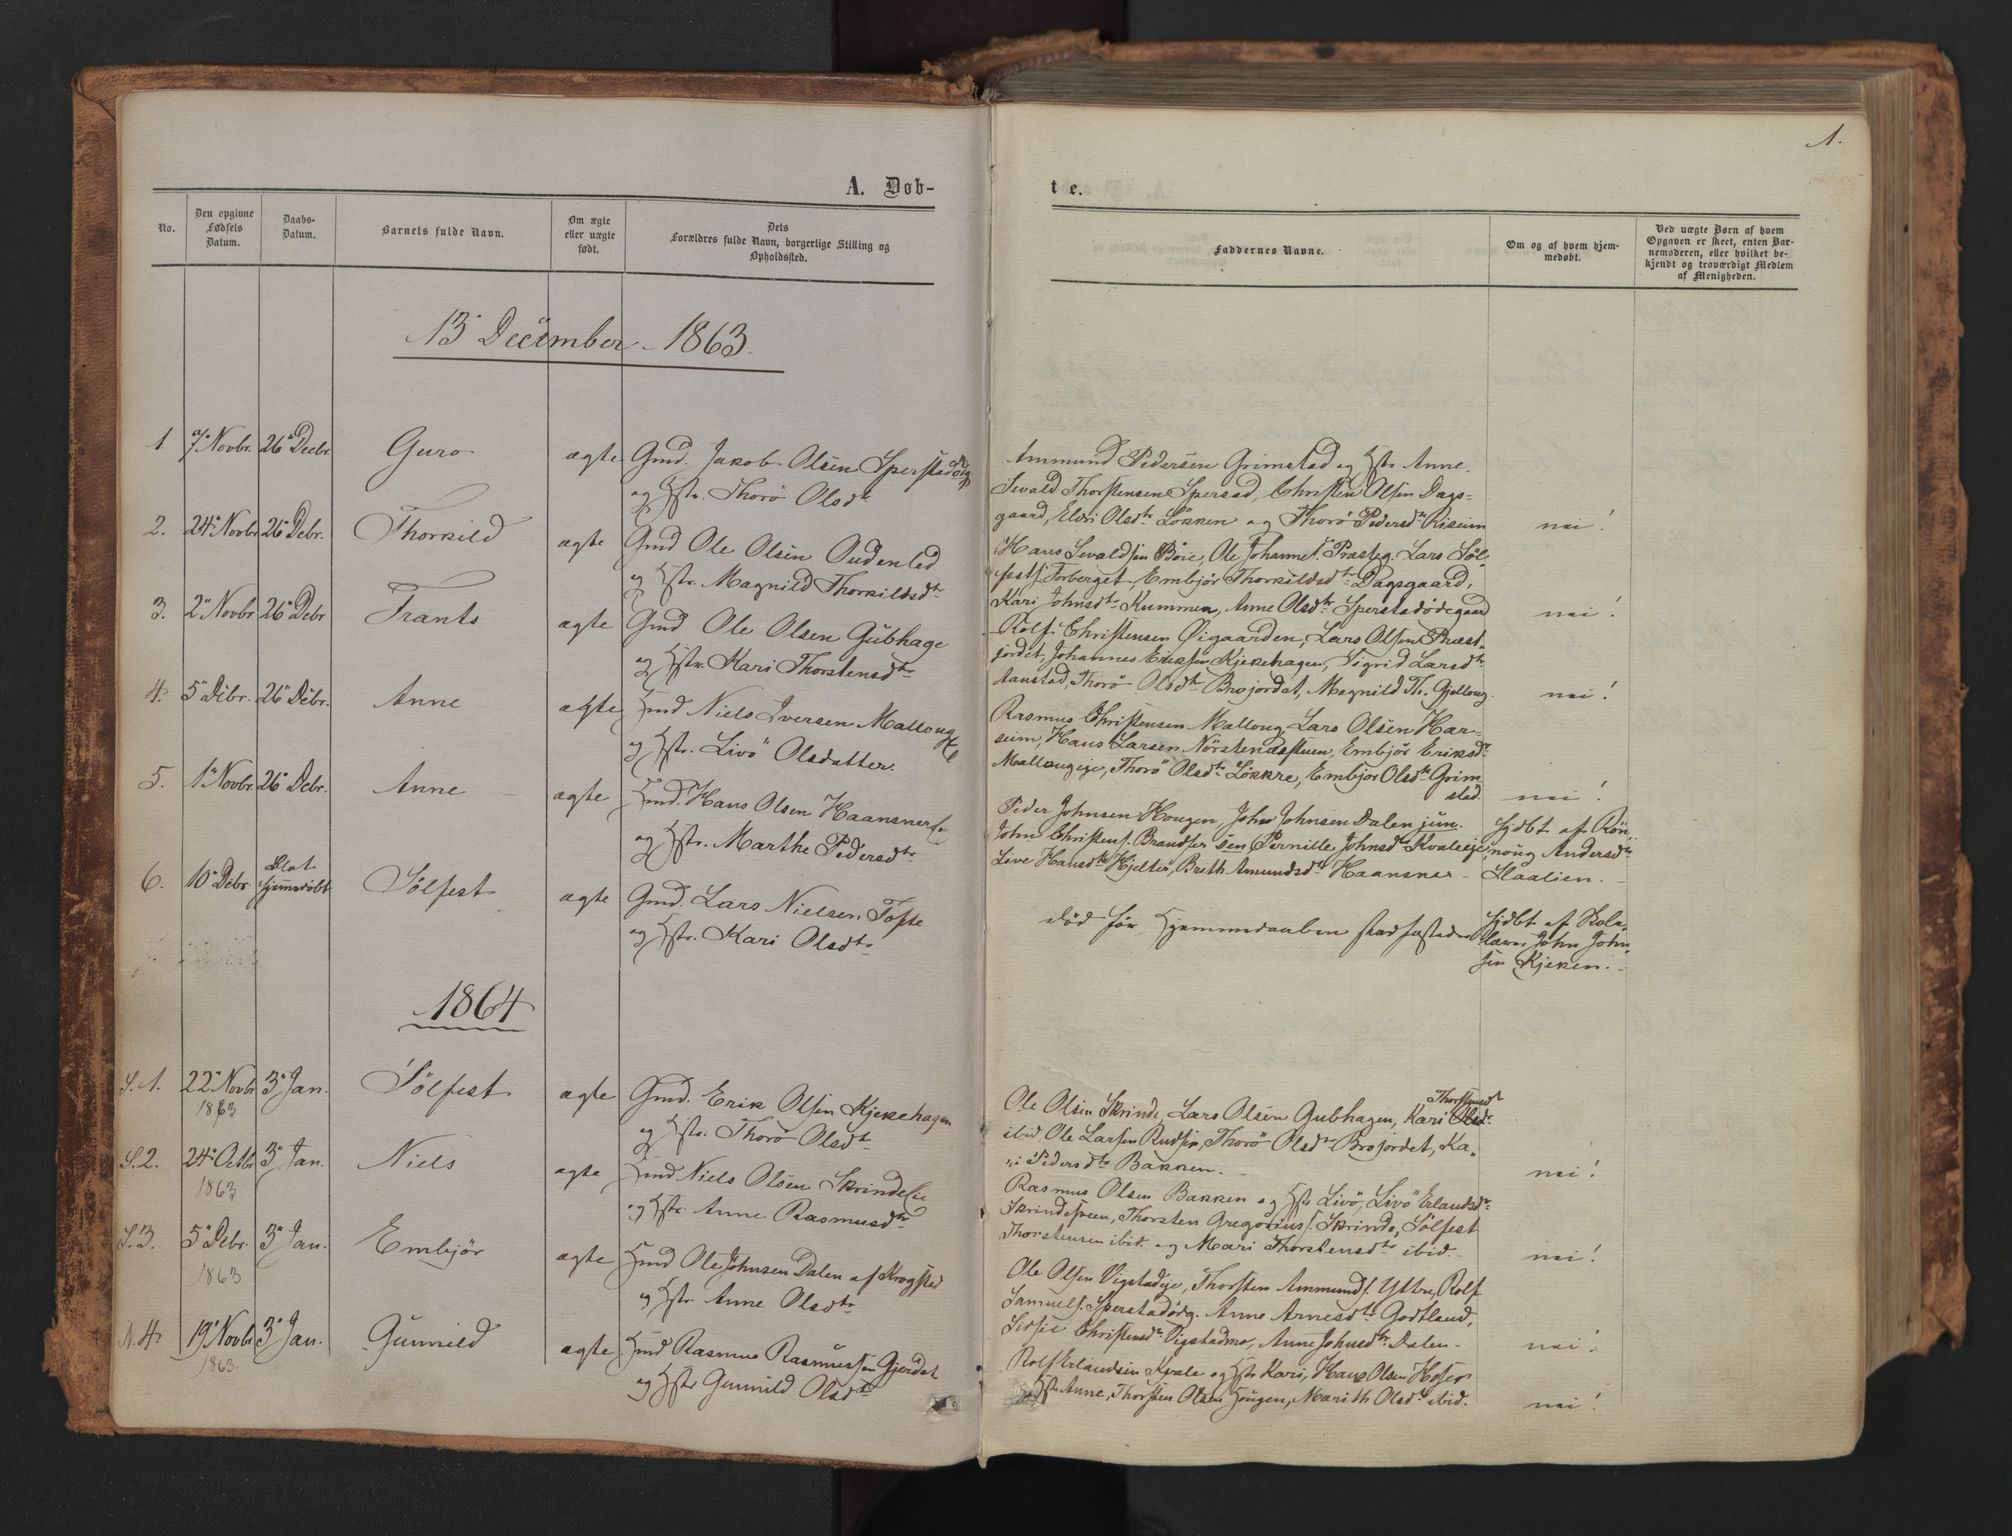 1.
A. Døb-
te.
No.
Den opgivne
Fødsels
Datum.
Daabs-
Datum.
Barnets fulde Navn.
Om ægte
eller uægte
født.
Dets
Forældres fulde Navn, borgerlige Stilling og
Opholdssted.
Faddernes Navne.
Om og af hvem hjem-
medøbt.
Ved uægte Børn af hvem
Opgaven er skeet, enten Bar-
nemoderen, eller hvilket be-
kjendt og troværdigt Medlem
af Menigheden.
13 December 1863.
1 7 Novbr. 26 Decbr. Guro ægte Gmd. Jakob Olsen Sperstadødeg
og Hstr. Thorø Olsdtr
Ammund Pedersen Grimstad og Hstr Anne.
Sevald Thorstensen Spersad, Christen Olsen Dags-
gaard, Eldri Olsdtr Løkken og Thorø Pedersdtr Riseim nei!
2. 24 Novbr 26 Debr. Thorkild ægte Gmd Ole Olsen Oudenled
og Hstr. Magnild Thorkildsdtr
Hans Sevaldsen Böie, Ole Johannes. Præsteg. Lars Søl-
fests. Forberget, Embjør Thorkildsdtr Dagsgaard,
Kari Johnsdtr Kummen, Anne Olsdtr Sperstadødegaard nei!
3. 2 Novbr 26 Debr Frants ægte Gmd Ole Olsen Gubhage
og Hstr. Kari Thorstensdtr
Rolf Christensen Øigaarden, Lars Olsen Præst-
jordet, Johannes Eriksen Kjekehagen, Sigrid Larsdtr
Aanstad, Thorø Olsdtr Brojordet, Magnild Th. Gjellong. nei!
4. 5 Debr. 26 Debr. Anne ægte Hmd Niels Iversen Mallong
og Hstr. Livø Olsdatter.
Rasmus Christensen Mallong, Lars Olsen Har-
seim, Hans Larsen Nørstenæsstuen, Embjør Eriksdtr
Mallongeje, Thorø Olsdtr Løkkre, Embjør Olsdtr Grim
stad. nei!
5. 1 Novbr. 26 Debr. Anne ægte Hmd. Hans Olsen Haansner
og Hstr. Marthe Pedersdtr
Peder Johnsen Hougen, John Johnsen Dalen jun.
John Christens. Brandser sen, Pernille Johnsdtr Kvaleeje,
Live Hansdtr Hjelter, Brith Amundsdtr Haansner
Hjdbt. af Røn
noug Andersdtr
Slaalien.
6. 10 Debr. Blot
hjemmedøbt Sølfest ægte Gmd. Lars Nielsen Tofte
og Hstr. Kari Olsdtr
død før Hjemmedaaben stadfæstedes
Hjdbt af Skole-
lærer John John-
sen Kjeken.
1864
S.1. 22 Novbr 3 Jan. Sølfest ægte Gmd. Erik Olsen Kjekehagen
1863 og Hstr. Thorø Olsdtr
Thorstensdtr
Ole Olsen Skrinde, Lars Olsen Gubhagen, Kari Olsdtr
ibid. Ole Larsen Rudsen, Thorø Olsdtr Brojordet, Ka-
ri Pedersdtr Bakken. nei!
S.2. 24 Octbr 3 Jan. Niels ægte Hmd Niels Olsen Skrinde
1863 og Hstr. Anne Rasmusdtr
Rasmus Olsen Bakken og Hstr Livø, Livø Erlandsdtr
Skrindesveen, Thorsten Gregorius. Skrinde, Sølfest
Thorstensen ibid. og Mari Thorstensdtr ibid. nei!
S.3. 5 Debr. 3 Jan. Embjør ægte Hmd Ole Johnsen Dalen af Krogstad
1863 og Hstr. Anne Olsdtr
Ole Olsen Vigstadeje, Thorsten Ammunds. Yttre, Rolf
Samuels. Sperstadødg. Anne Arnesdtr Godtland,
Sidsie Christensdtr Vigstadmo, Anne Johnsdtr Dalen. nei!
N.4. 19 Novbr 3 Jan. Gunnild ægte Hmd Rasmus Rasmussen Gjerdet
1863. og Hstr Gunnild Olsdtr
Rolf Erlandsen Kvale og Hstr Kari, Hans Olsen
Hstr Anne, Thorsten Olsen Hougen, Marith Olsdtr ibid. nei!